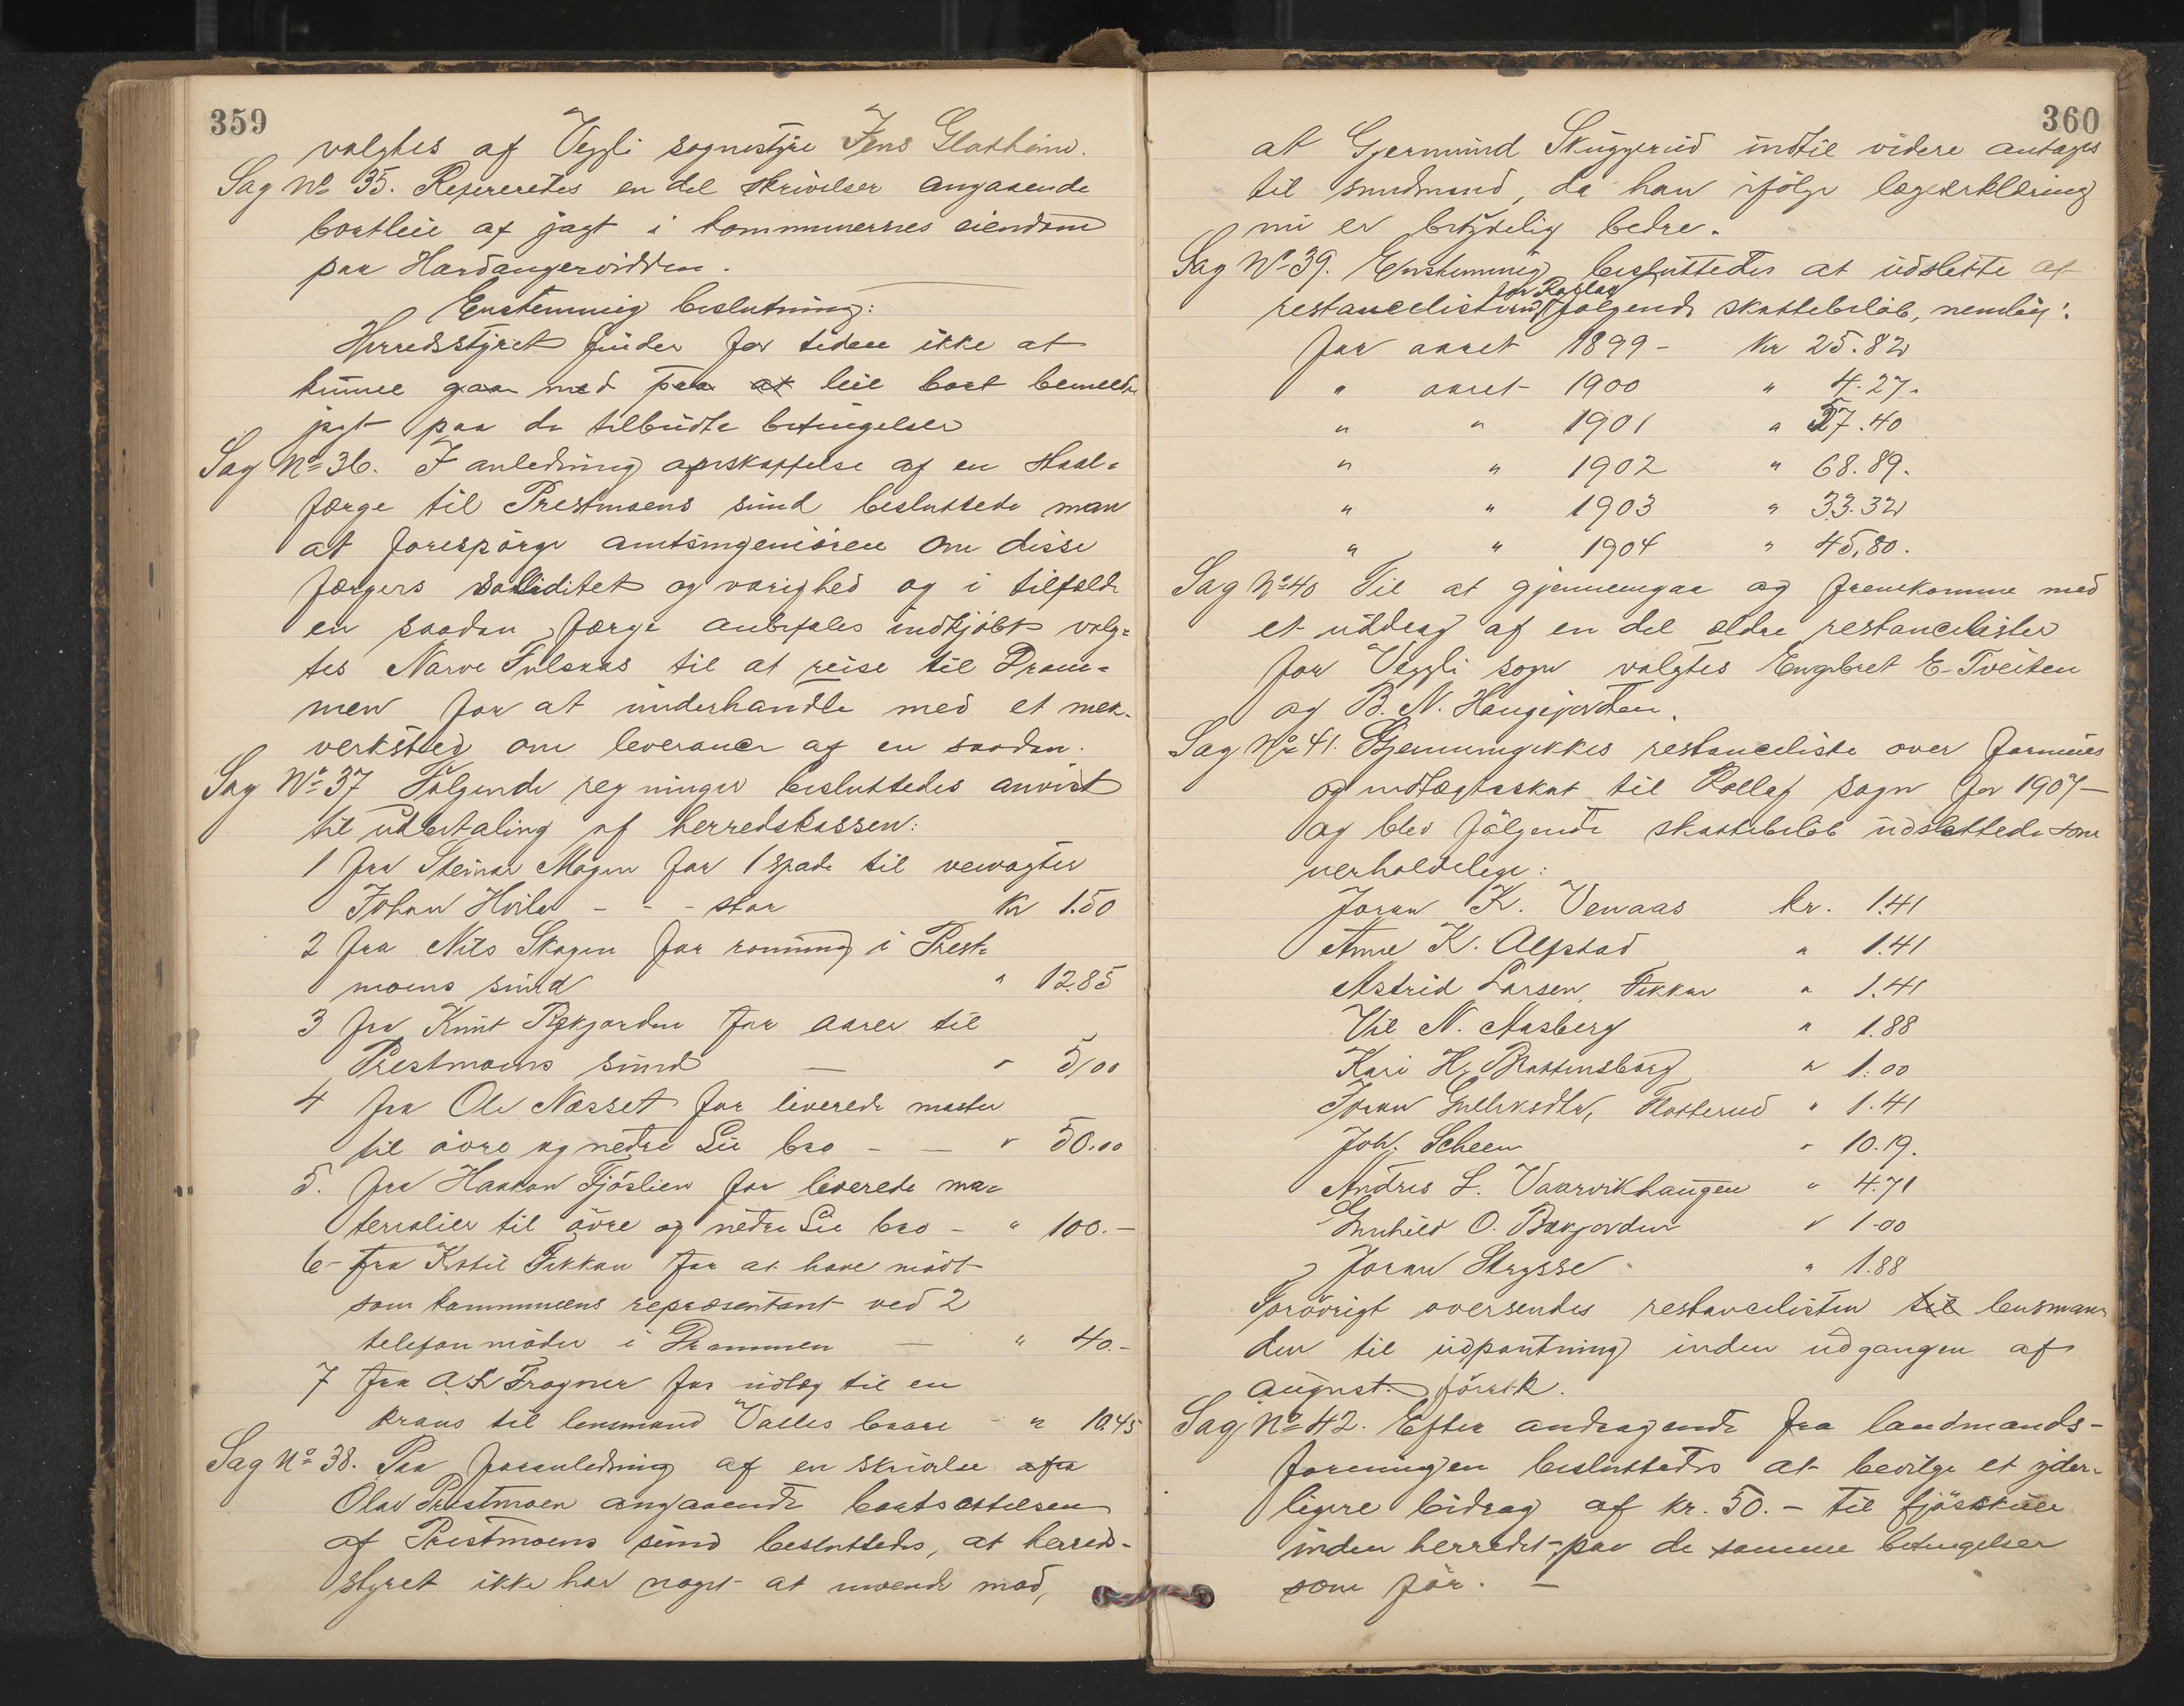 359
valgtes af Veggli sognestyre Jens Glasheim.
Sag No 35. Refereredes en del skrivelser angaaende
bortleie af jagt i kommunernes eiendom
paa Hardangervidden.
Enstemmig beslutning:
Herredsstyret finder for tiden ikke at
kunne gaa med paa at leie bort bemeldte
jagt paa de tilbudte betingelser
Sag No 36. I anledning anskaffelse af en staal-
færge til Prestmoens sund besluttede man
at forespørge amtsingeniøren om disse
færgers soliditet og varighed og i tilfælde
en saadan færge anbefales indkjøbt valg-
tes Narve Fulsaas til at reise til Dram-
men for at underhandle med et mek.
verksted om leverance af en saadan.
Sag No 37 Følgende regninger besluttedes anvist
til udbetaling af herredskassen:
1 fra Steinar Mogen for 1 spade til veivogter
Johan Hvila - - - stor kr 1.50
2 fra Nils Skogen for roning i Prest-
moens sund " 12.85
3 fra Knut Bekjorden for aarer til
Prestmoens sund — " 5,00
4 fra Ole Næsset for leverede master
til øvre og nedre Lie bro - — " 50.00
5. fra Haakon Fjøslien for leverede ma-
terialier til øvre og nedre Lie bro - " 100.—
6- fra Kittil Fekkan for at have mødt
som kommunens repræsentant ved 2
telefonmøder i Drammen — " 40.-
7 fra A. L. Frogner for udlæg til en
krans til lensmand Valles baare - " 10.45
Sag No 38. Paa foranledning af en skrivelse afra
Olav Prestmoen angaaende bortsættelsen
af Prestmoens sund besluttedes, at herreds-
styret ikke har noget at invende mod,
360
at Gjermund Skuggerud indtil videre antages
til sundmand, da han ifølge lægeerklæring
nu er betydelig bedre.
Sag No 39. Enstemmig besluttedes at udslette af
for Rollag
restancelisterne følgende skattebeløb, nemlig:
for aaret 1899 - kr 25.82
" aaret 1900 " 4.27.
" " 1901 " 57.40
" " 1902 " 68.89.
" " 1903 " 33.32
" " 1904 " 45,80.
Sag No 40 Til at gjennemgaa og fremkomme med
et uddrag af en del ældre restancelister
for Veggli sogn valgtes Engebret E. Tveiten
og B. N. Haugejorden.
Sag No 41. Gjennemgikkes restanceliste over formues
og indtægtsskat til Rollag sogn for 1907—
og blev følgende skattebeløb udslettede som
uerholdelige:
Joran K. Venaas kr. 1.41
Anne K. Alfstad " 1.41
Astrid Larsen, Fekkan " 1.41
Vil N. Aasberg " 1.88
Kari H. Brattensborg " 1.00
Joran Gulliksdtr, Flotterud " 1.41
Joh. Scheen " 10.19.
Andres L. Vaarvikhaugen " 4.71
Gunhild O. Bekjorden " 1.00
Joran Strysse " 1.88
Forøvrigt oversendes restancelisten til lensman-
den til udpantning inden udgangen af
august førstk.
Sag No 42. Efter andragende fra landmands-
foreningen besluttedes at bevilge et yder-
ligere bidrag af kr. 50.- til fjøsskuer
inden herredet paa de samme betingelser
som før. —